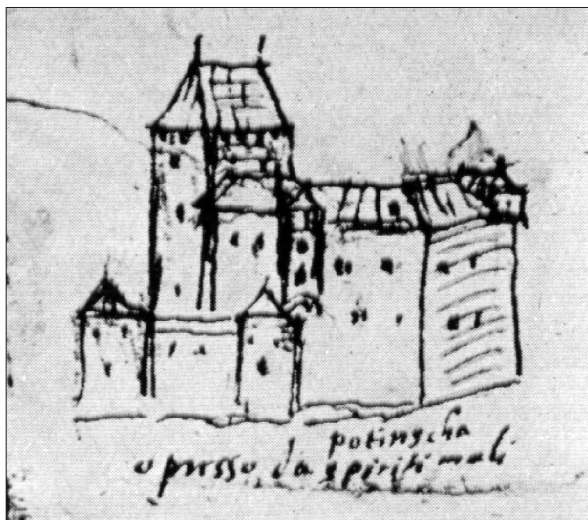 potingcha
o presso da spiriti mali